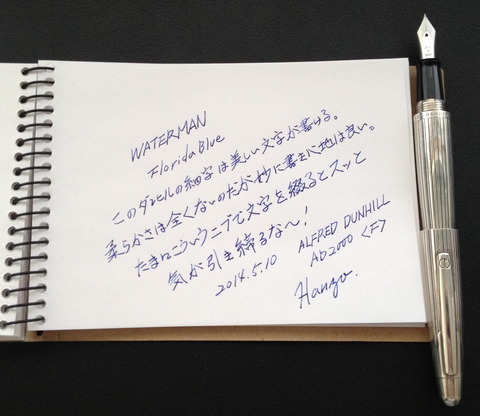 WATERMAN
Florida Blue
このダンヒルの細字は美しい文字が書ける。
柔らかさは全くないのだが妙に書き心地は良い。
たまにこういうニブで文字を綴るとスッと
気が引き締るな〜!
2014.5.10
ALFRED DUNHILL
AD2000 <F>
Hanzo.